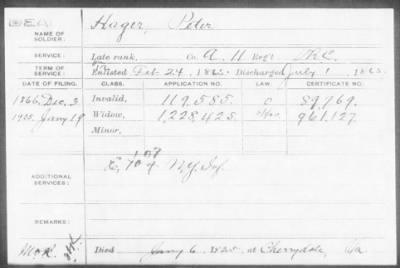 DEA
NAME OF SOLDIER: Hager, Peter
SERVICE: Late rank, Co. A. 11 Reg't
TERM OF SERVICE: Enlisted Feb. 24, 1862. Discharged July 1, 1865.
DATE OF FILING. CLASS. APPLICATION NO. LAW. CERTIFICATE NO.
1866, Dec. 3 Invalid, 119.585. 89.769.
1925, Jany 19 Widow, 1,228,425. 961,127
Minor,
107
ADDITIONAL SERVICES: E, 70 N.Y. Inf.
REMARKS:
Died Jany 6, 1925, at Cherrydale, Va